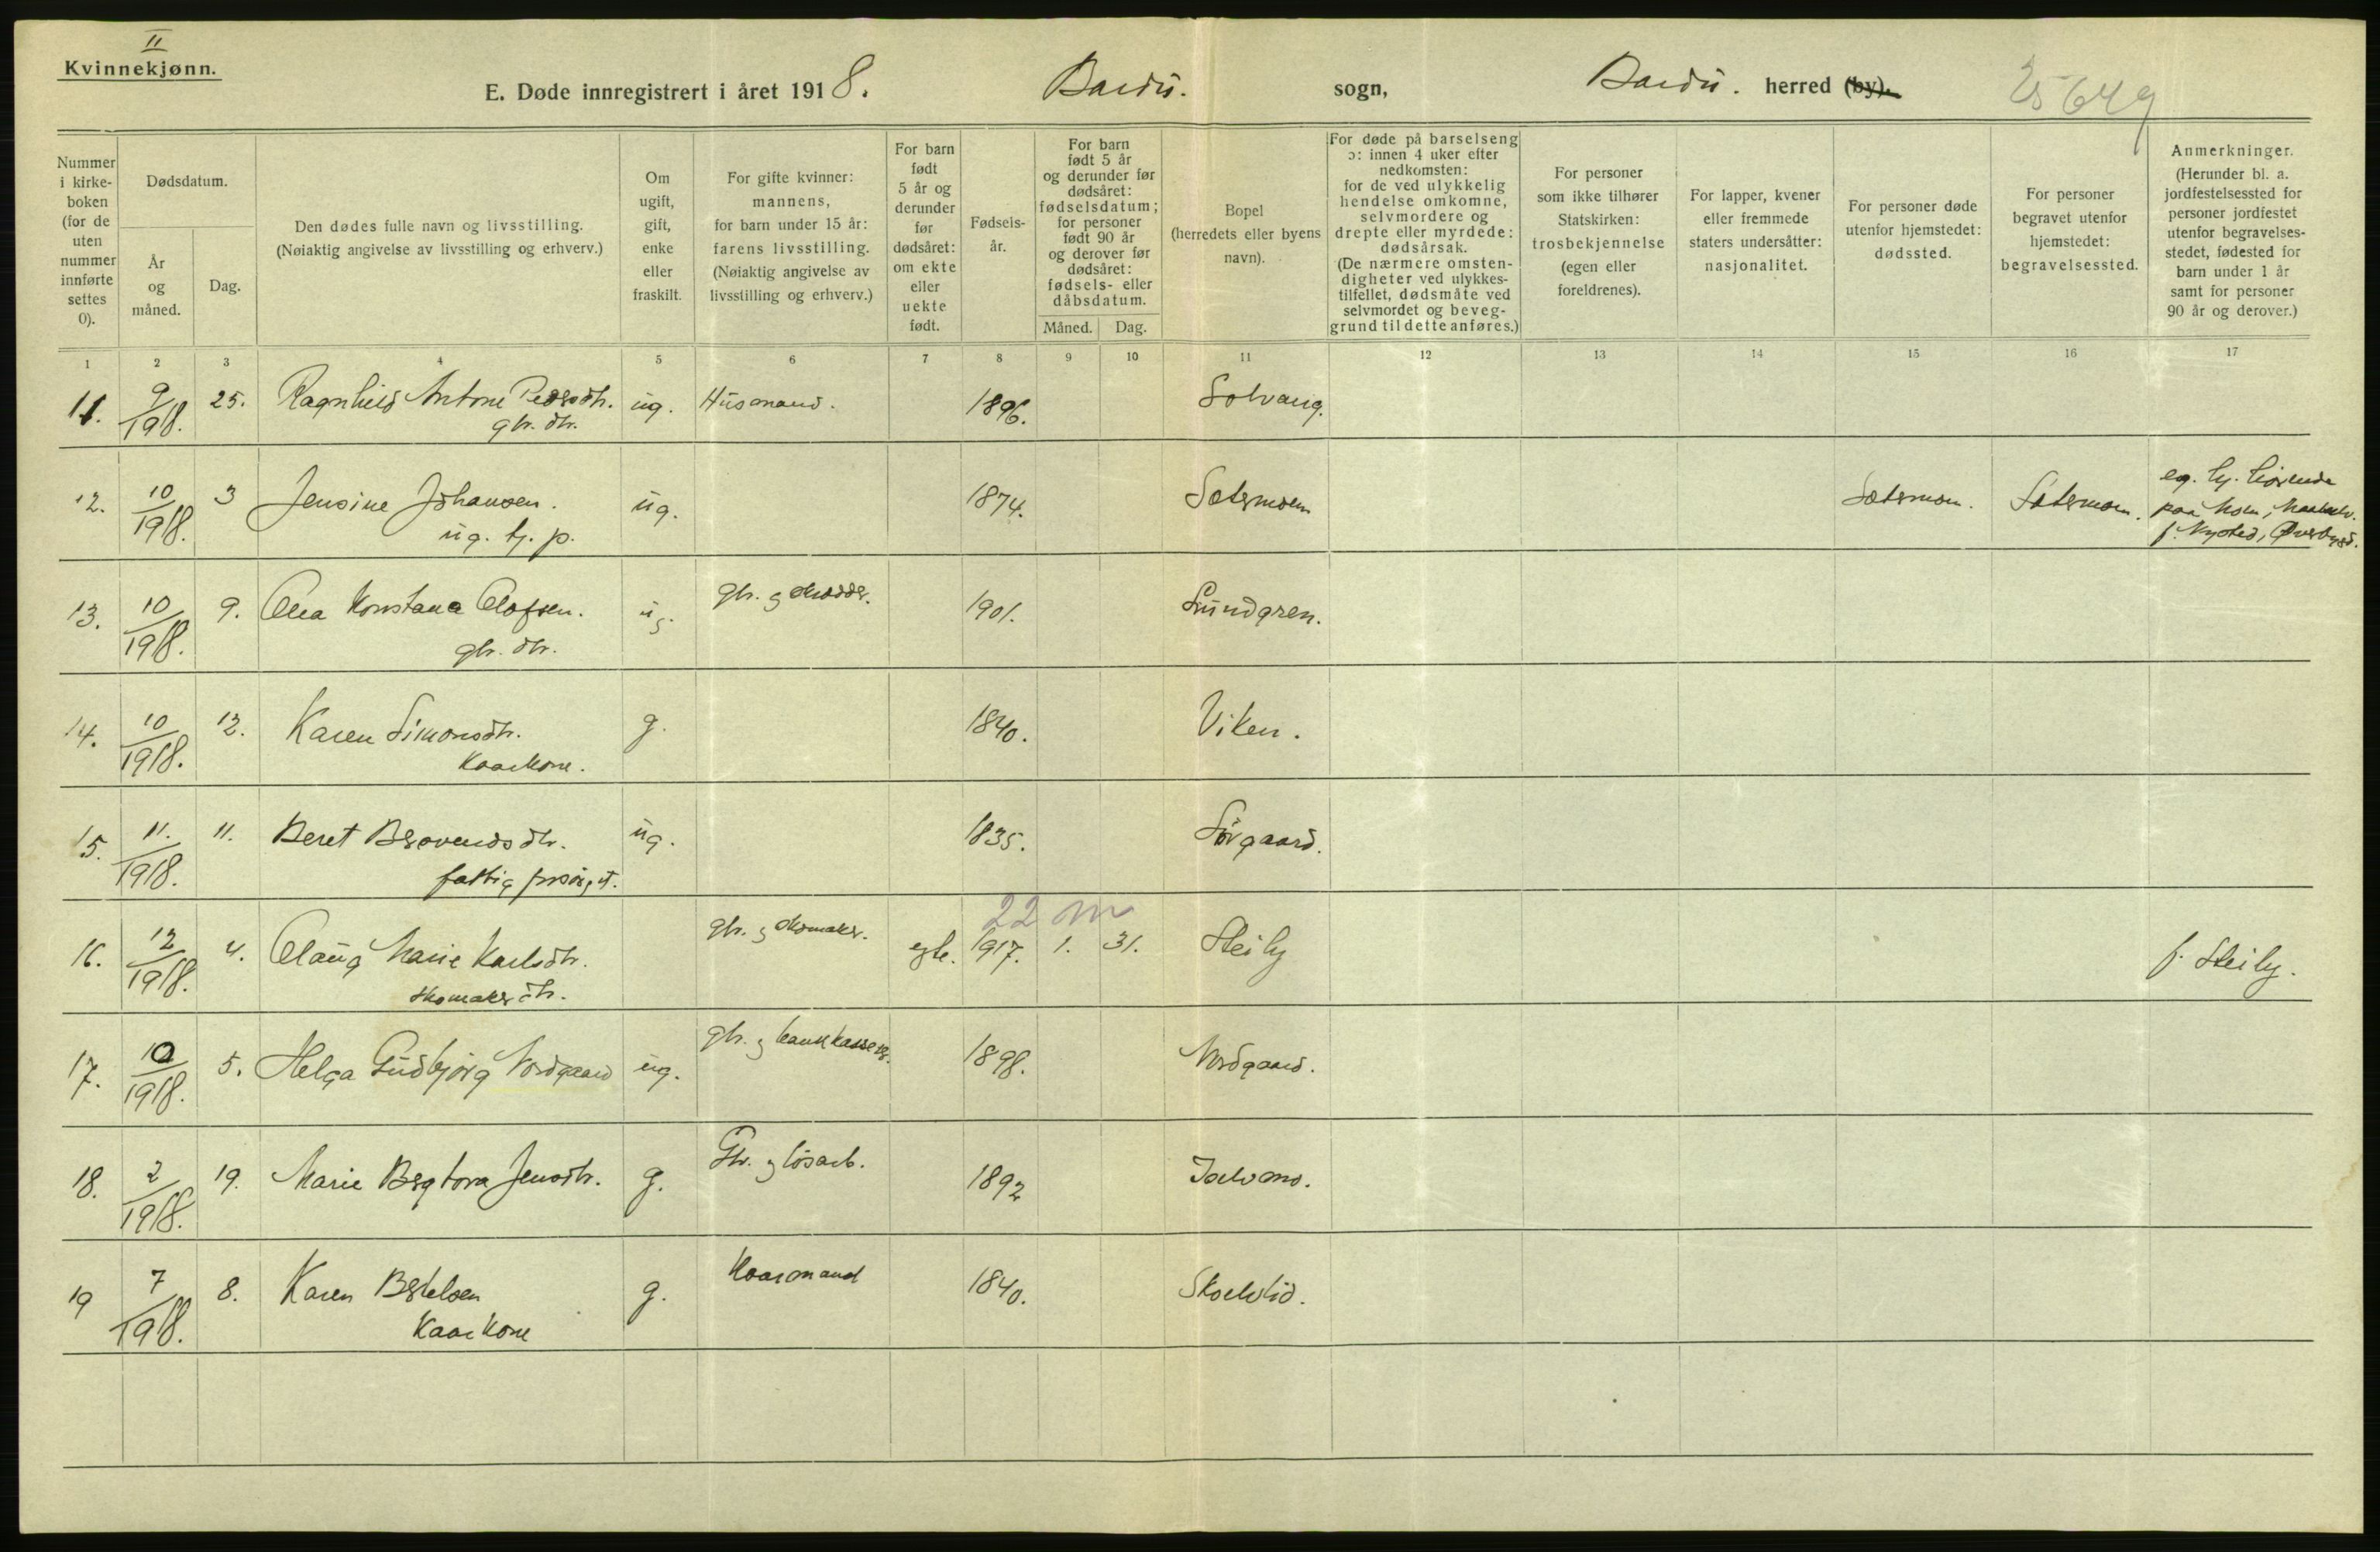 II
Kvinnekjønn.
E. Døde innregistrert i året 1918. Bardu. sogn, Bardu. herred (by).
25649
Nummer i kirkeboken (for de uten nummer innførte settes 0).
Dødsdatum.
År og måned.
Dag.
Den dødes fulle navn og livsstilling.
(Nøiaktig angivelse av livsstilling og erhverv.)
Om ugift, gift, enke eller fraskilt.
For gifte kvinner: mannens, for barn under 15 år: farens livsstilling. (Nøiaktig angivelse av livsstilling og erhverv.)
For barn født 5 år og derunder før dødsåret: om ekte eller uekte født.
Fødselsår.
For barn født 5 år og derunder før dødsåret: fødselsdatum; for personer født 90 år og derover før dødsåret: fødsels- eller dåbsdatum.
Måned. Dag.
Bopel (herredets eller byens navn).
For døde på barselseng ɔ: innen 4 uker efter nedkomsten: for de ved ulykkelig hendelse omkomne, selvmordere og drepte eller myrdede: dødsårsak. (De nærmere omstendigheter ved ulykkestilfellet, dødsmåte ved selvmordet og beveggrund til dette anføres.)
For personer som ikke tilhører Statskirken: trosbekjennelse (egen eller foreldrenes).
For lapper, kvener eller fremmede staters undersåtter: nasjonalitet.
For personer døde utenfor hjemstedet: dødssted.
For personer begravet utenfor hjemstedet: begravelsessted.
Anmerkninger. (Herunder bl. a. jordfestelsessted for personer jordfestet utenfor begravelsesstedet, fødested for barn under 1 år samt for personer 90 år og derover.)
1 2 3 4 5 6 7 8 9 10 11 12 13 14 15 16 17
11. 9/1918. 25. Ragnhild Antone Pedersdtr. ug. Husmand. 1896. Solvang.
gbr. dtr.
12. 10/1918. 3 Jensine Johansen. ug. 1874. Sætermoen Sætermoen. Sætermoen.
ug. tj. p.
paa Moen, Maalselv.
f. Nysted, Øverbygd.
13. 10/1918. 9. Olea Konstana Olofsen. ug. gbr. og skrædder. 1901. Lundgren.
gbr. dtr.
14. 10/1918. 12. Karen Simonsdtr. g. 1840. Viken.
Kaarkone.
15. 11./1918. 11. Beret Brovendsdtr. ug. 1835. Sørgaard.
fattig forsørget.
22 m
16. 12/1918. 4. Olaug Marie Karlsdtr. gbr. og skomaker. egte. 1917. 1. 31. Steily f. Steily.
skomaker dtr.
17. 10/1918. 5. Helga Gudbjørg Nordgaard ug. gbr. og bankkasserer. 1898. Nordgaard.
18. 2/1918. 19. Marie Bergtora Jensdtr. g. Gbr. og løsarb. 1892 Iselvmo.
19 7/1918. 8. Karen Bertelsen g. Kaarmand 1840. Skoelvlid.
Kaarkone